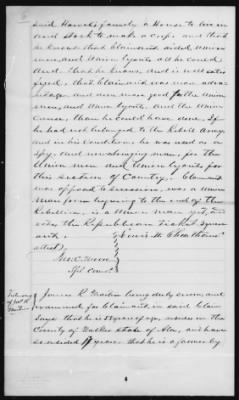 said Harvels family a House to live in
and Stock to make a crop. and that
he knows that Claimant aided Union
men, and Union loyalists all he could
And that he knows and is well satis
fied, that Claimant was more advan
tage and done more good for the Union
men, and Union loyalists, and the Union
Cause, than he could have done, if
he had not belonged to the Rebel Army
and in his Condition, he was used as a
Spy, and unending man, for the
Union men and Union loyalists for
this section of Country. Claimant
was opposed to secession, was a Union
man from begining to the end of the
Rebellion, is a Union man yet, and
votes the Republican Ticket square
out.
attest,
Spl Com.
Testimony
of
James R. being duly sworn, and
examined for Claimant in said Claim
Says that he is 58 years of age, resides in the
County of Walker State of Ala, and have
so resided 17 years. that he is a farmer by